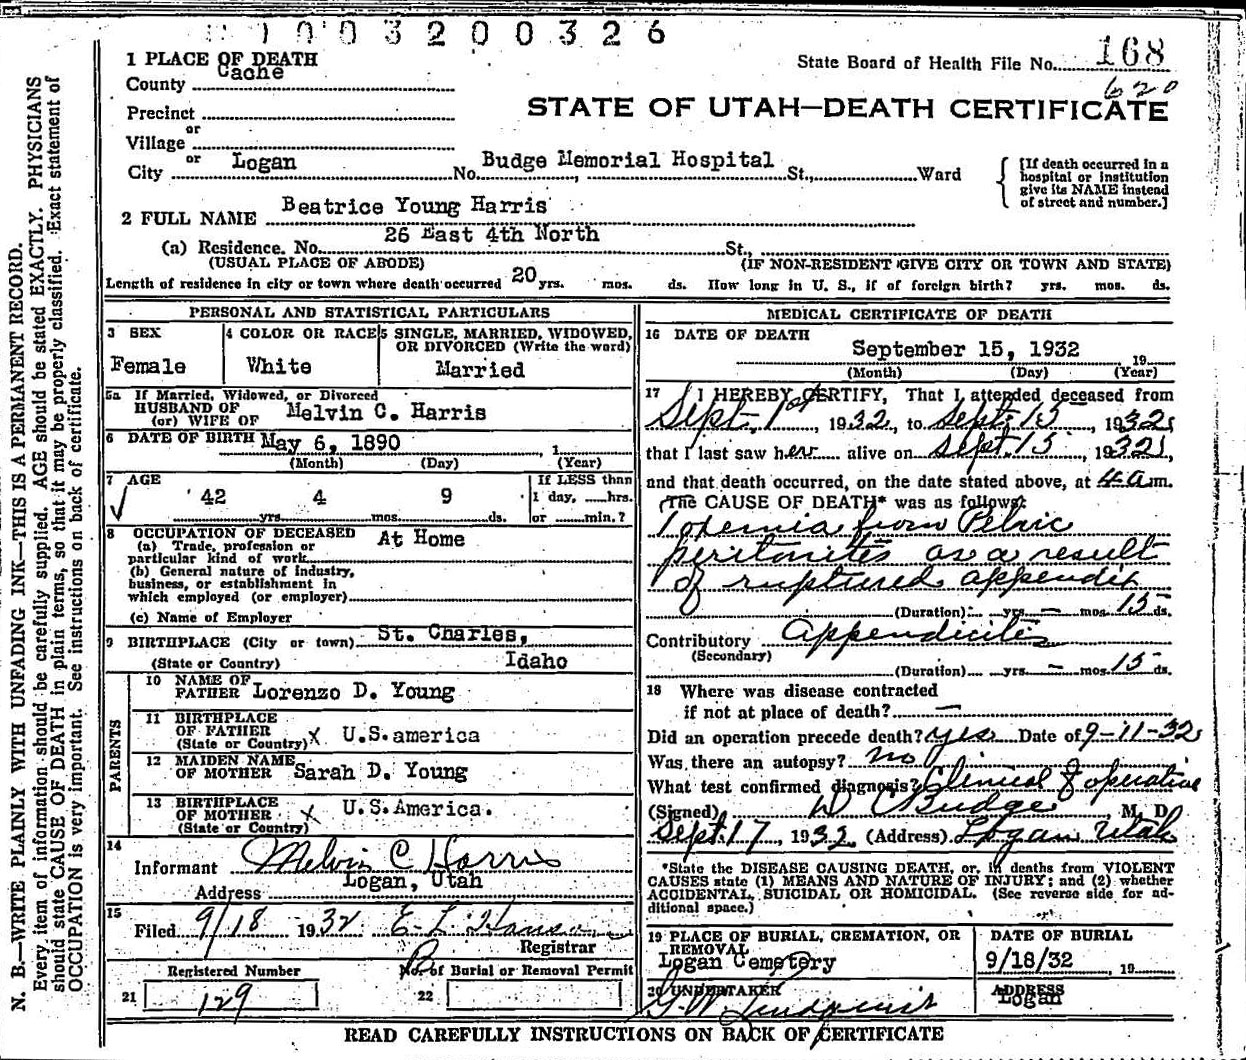 1 0 0 3 2 0 0 3 2 6
1 PLACE OF DEATH
County Cache
State Board of Health File No. 168
620
STATE OF UTAH—DEATH CERTIFICATE
Precinct
or
Village
or
City Logan No. Budge Memorial Hospital St., Ward
[If death occurred in a hospital or institution give its NAME instead of street and number.]
2 FULL NAME Beatrice Young Harris
(a) Residence. No. 26 East 4th North St.,
(USUAL PLACE OF ABODE) (IF NON-RESIDENT GIVE CITY OR TOWN AND STATE)
Length of residence in city or town where death occurred 20 yrs. mos. ds. How long in U. S., if of foreign birth? yrs. mos. ds.
PERSONAL AND STATISTICAL PARTICULARS
3 SEX
Female
4 COLOR OR RACE
White
5 SINGLE, MARRIED, WIDOWED, OR DIVORCED (Write the word)
Married
5a If Married, Widowed, or Divorced
HUSBAND OF
(or) WIFE OF Melvin C. Harris
6 DATE OF BIRTH May 6, 1890, 1
(Month) (Day) (Year)
7 AGE
42 yrs. 4 mos. 9 ds.
If LESS than
1 day, hrs.
or min.?
8 OCCUPATION OF DECEASED At Home
(a) Trade, profession or
particular kind of work
(b) General nature of Industry,
business, or establishment in
which employed (or employer)
(c) Name of Employer
9 BIRTHPLACE (City or town) St. Charles,
(State or Country) Idaho
PARENTS
10 NAME OF
FATHER Lorenzo D. Young
11 BIRTHPLACE
OF FATHER
(State or Country) X U.S.america
12 MAIDEN NAME
OF MOTHER Sarah D. Young
13 BIRTHPLACE
OF MOTHER
(State or Country) X U.S.America.
14
Informant Melvin C Harris
Address Logan, Utah
15
Filed 9/18 1932 E. L. Hanson
Registrar
Registered Number
21 129
No. of Burial or Removal Permit
22
MEDICAL CERTIFICATE OF DEATH
16 DATE OF DEATH
September 15, 1932 19
(Month) (Day) (Year)
17 I HEREBY CERTIFY, That I attended deceased from
Sept. 1st, 1932, to Sept. 15, 1932,
that I last saw her alive on Sept. 15, 1932,
and that death occurred, on the date stated above, at 4 a m.
The CAUSE OF DEATH* was as follows:
Toxemia from Pelvic
peritonitis as a result
of ruptured appendix
(Duration) yrs. — mos. 15 ds.
Contributory Appendicitis
(Secondary)
(Duration) yrs. — mos. 15 ds.
18 Where was disease contracted
if not at place of death? —
Did an operation precede death? yes Date of 9-11-32
Was there an autopsy? no
What test confirmed diagnosis? Clinical & operative
(Signed) D C Budge, M. D.
Sept. 17, 1932 (Address) Logan Utah
*State the DISEASE CAUSING DEATH, or, in deaths from VIOLENT
CAUSES state (1) MEANS AND NATURE OF INJURY; and (2) whether
ACCIDENTAL, SUICIDAL OR HOMICIDAL. (See reverse side for ad-
ditional space.)
19 PLACE OF BURIAL, CREMATION, OR
REMOVAL
Logan Cemetery
DATE OF BURIAL
9/18/32, 19
20 UNDERTAKER
G. W. Lindquist
ADDRESS
Logan
READ CAREFULLY INSTRUCTIONS ON BACK OF CERTIFICATE
N. B.—WRITE PLAINLY WITH UNFADING INK—THIS IS A PERMANENT RECORD.
Every item of information should be carefully supplied. AGE should be stated EXACTLY. PHYSICIANS
should state CAUSE OF DEATH in plain terms, so that it may be properly classified. Exact statement of
OCCUPATION is very important. See instructions on back of certificate.